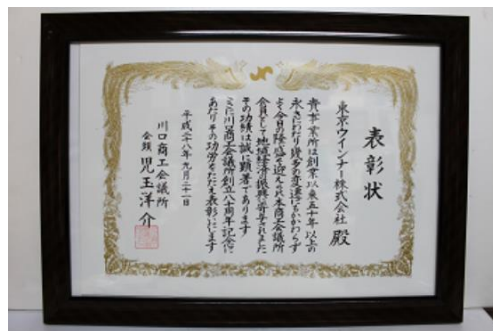 表彰状
東京ウインナー株式会社 殿
貴事業所は創業以来五十年以上の
永きにわたり幾多の変遷にもかかわらず
よく今日の隆盛を迎えられ本商工会議所
会員として地域経済の振興に寄与されました
その功績は誠に顕著であります
ここに川口商工会議所創立八十周年記念に
あたりその功労をたたえ表彰いたします
平成二十八年九月二十一日
川口商工会議所
会頭 児玉洋介